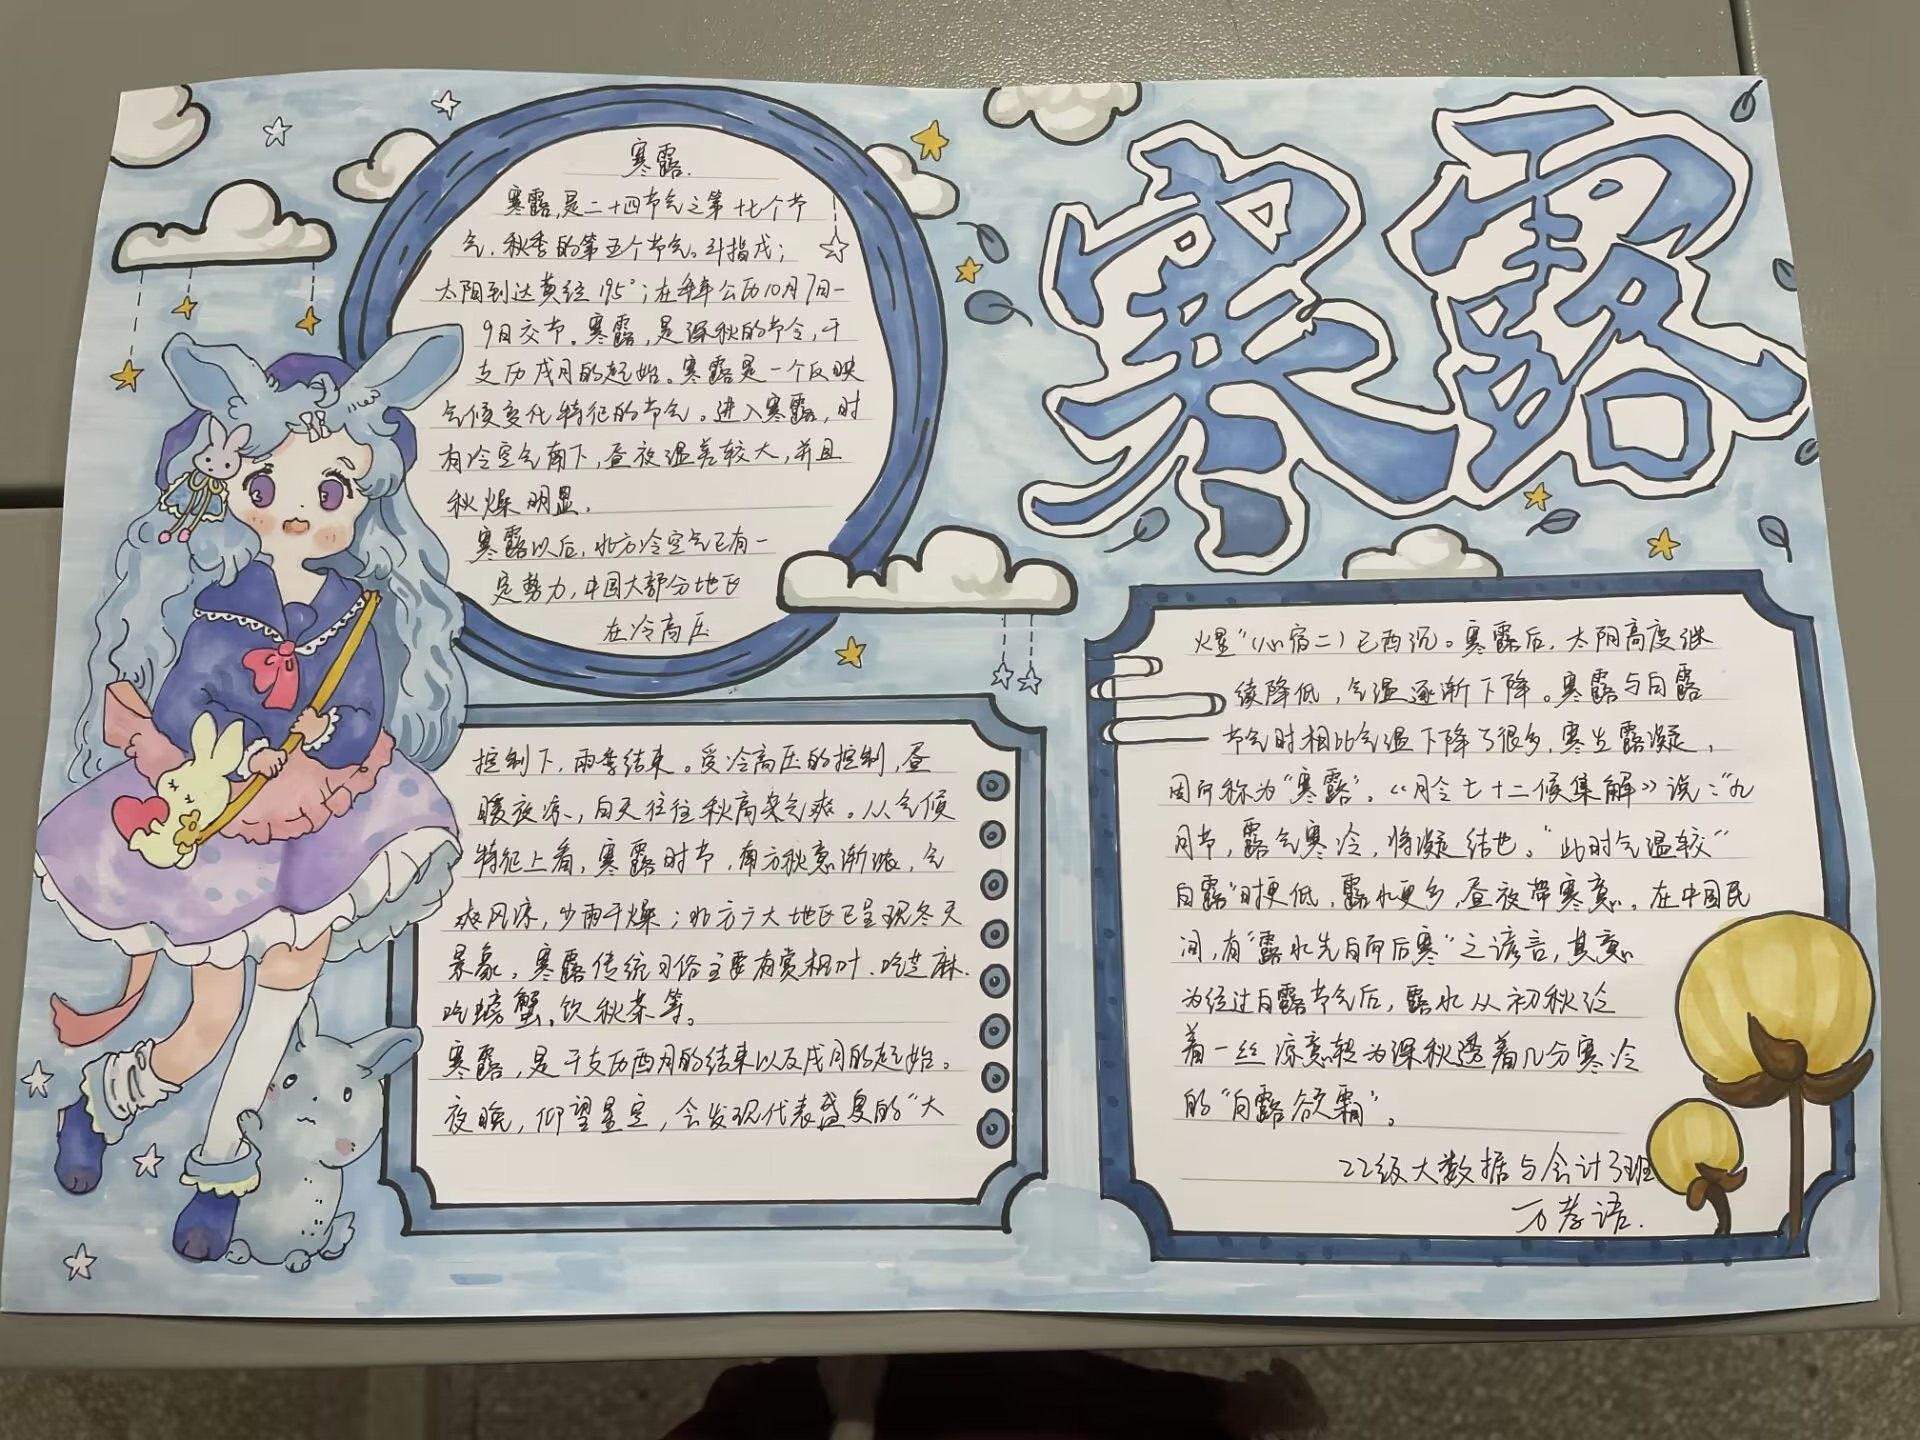 寒露
寒露.
寒露,是二十四节气之第十七个节
气,秋季的第五个节气。斗指戌;
太阳到达黄经195°;在每年公历10月7日-
9日交节。寒露,是深秋的节令,干
支历戌月的起始。寒露是一个反映
气候变化特征的节气。进入寒露,时
有冷空气南下,昼夜温差较大,并且
秋燥明显.
寒露以后,北方冷空气已有一
定势力,中国大部分地区
在冷高压
控制下,雨季结束。受冷高压的控制,昼
暖夜凉,白天往往秋高气爽。从气候
特征上看,寒露时节,南方秋意渐浓,气
爽风凉,少雨干燥;北方广大地区已呈现冬天
景象,寒露传统习俗主要有赏枫叶.吃芝麻.
吃螃蟹,饮秋茶等。
寒露,是干支历酉月的结束以及戌月的起始。
夜晚,仰望星空,会发现代表盛夏的“大
火星”(心宿二)已西沉。寒露后,太阳高度继
续降低,气温逐渐下降。寒露与白露
节气时相比气温下降了很多,寒生露凝,
因而称为“寒露”。《月令七十二候集解》说:“九
月节,露气寒冷,将凝结也。”此时气温较“
白露”时更低,露水更多,昼夜带寒意。在中国民
间,有“露水先白而后寒”之谚言,其意
为经过白露节气后,露水从初秋泛
着一丝凉意转为深秋透着几分寒冷
的“白露欲霜”。
22级大数据与会计3班
万孝语.